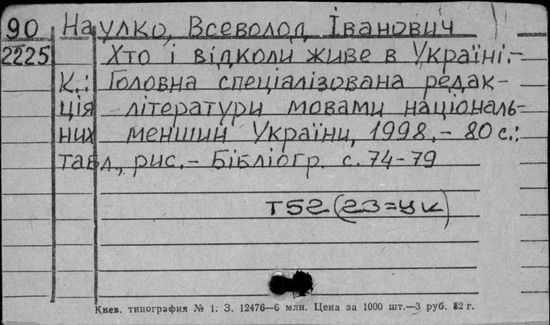 90 Наулко, Всеволод Іванович
2225 Хто і відколи живе в Україні.-
К.: Головна спеціалізована редак-
ція літератури мовами національ-
них менший України, 1998.- 80 с.:
табл., рис.- Бібліогр. с. 74-79
Т52(2У=УК)
Киев. типография № 1. З. 12476—6 млн. Цена за 1000 шт.—3 руб. 82 г.